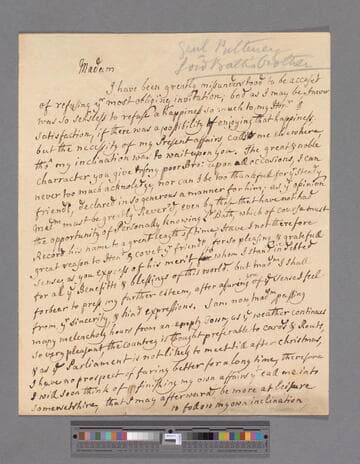 Genl Pulteney
Lord Bath's brother
Madam
I have been greatly misunderstood to be accused
of refusing yr most obliging invitation, bad as I may be, I never
was so senseless to refuse a happiness so much to my Honr &
satisfaction, if there was a possibility of enjoying that happiness.
but the necessity of my present affairs calls me elsewhere
tho' my inclination was to wait upon you. The great & noble
character you give of my poor Bror: upon all occasions, I can
never too much acknowledge, nor can I be too thankful for yr steady
friend, declared in so generous a manner for him, as yr opinion
Madm must be greatly Rever'd, even by those that have not had
the opportunity of Personally knowing Ld Bath, which of course must
Record his name to a great length of time. Have I not therefore
great reason to Honr & covet yr friendp. for so pleasing & grateful
sense as you express of his merit for whom I stand indebted
for all ye Benefitts & blessings of this world but Madm I shall
forbear to press my further esteem, after assuring you of ye sense I feel
from yr sincerity & kind expressions. I am now Madm passing
many melencholy hours from an empty Town, as ye weather continues
so very pleasant the Country is thought preferable to Cards & Routs,
& as ye Parliament is not likely to meet till after christmas,
I have no prospect of faring better for a long time, therefore
I will soon think of finishing my own affairs yt call me into
Somersetshire, that I may afterwards be more at leisure
to follow my own inclination